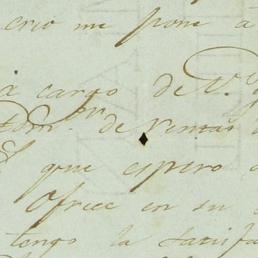 me pone á
á cargo de V.
Adm.ᵒⁿ de rentas
que espero
Ofrece en su
tengo la satisfa